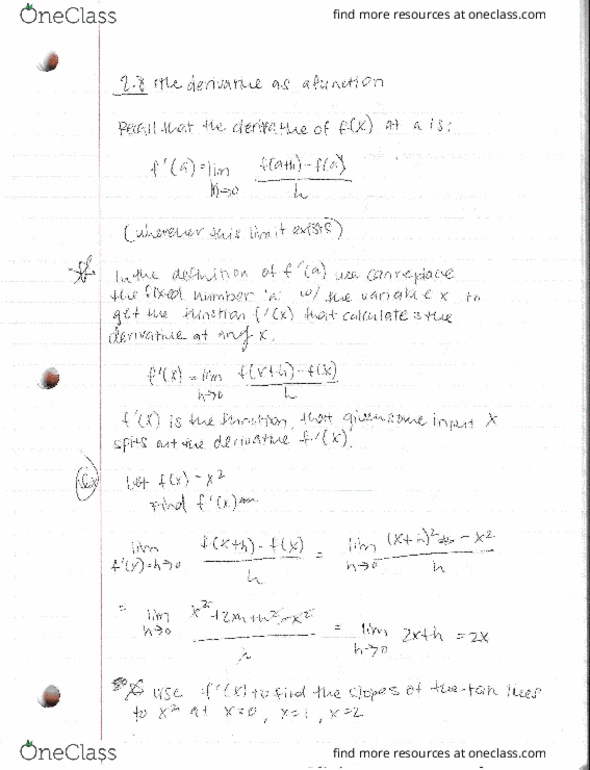 OneClass
find more resources at oneclass.com
2.8 the derivative as a function
Recall that the derivative of f(x) at a is:
f'(a) = lim h→0 f(a+h) - f(a) / h
(wherever this limit exists)
In the definition of f'(a) we can replace
the fixed number 'a' w/ the variable x to
get the function f'(x) that calculates the
derivative at any x.
f'(x) = lim h→0 f(x+h) - f(x) / h
f'(x) is the function, that given some input x
spits out the derivative f'(x).
Let f(x) = x²
Find f'(x)
f'(x) = lim h→0 f(x+h) - f(x) / h = lim h→0 (x+h)² - x² / h
= lim h→0 x² + 2xh + h² - x² / h = lim h→0 2x+h = 2x
use f'(x) to find the slopes of the tan lines
to x² at x=0, x=1, x=2
OneClass
find more resources at oneclass.com